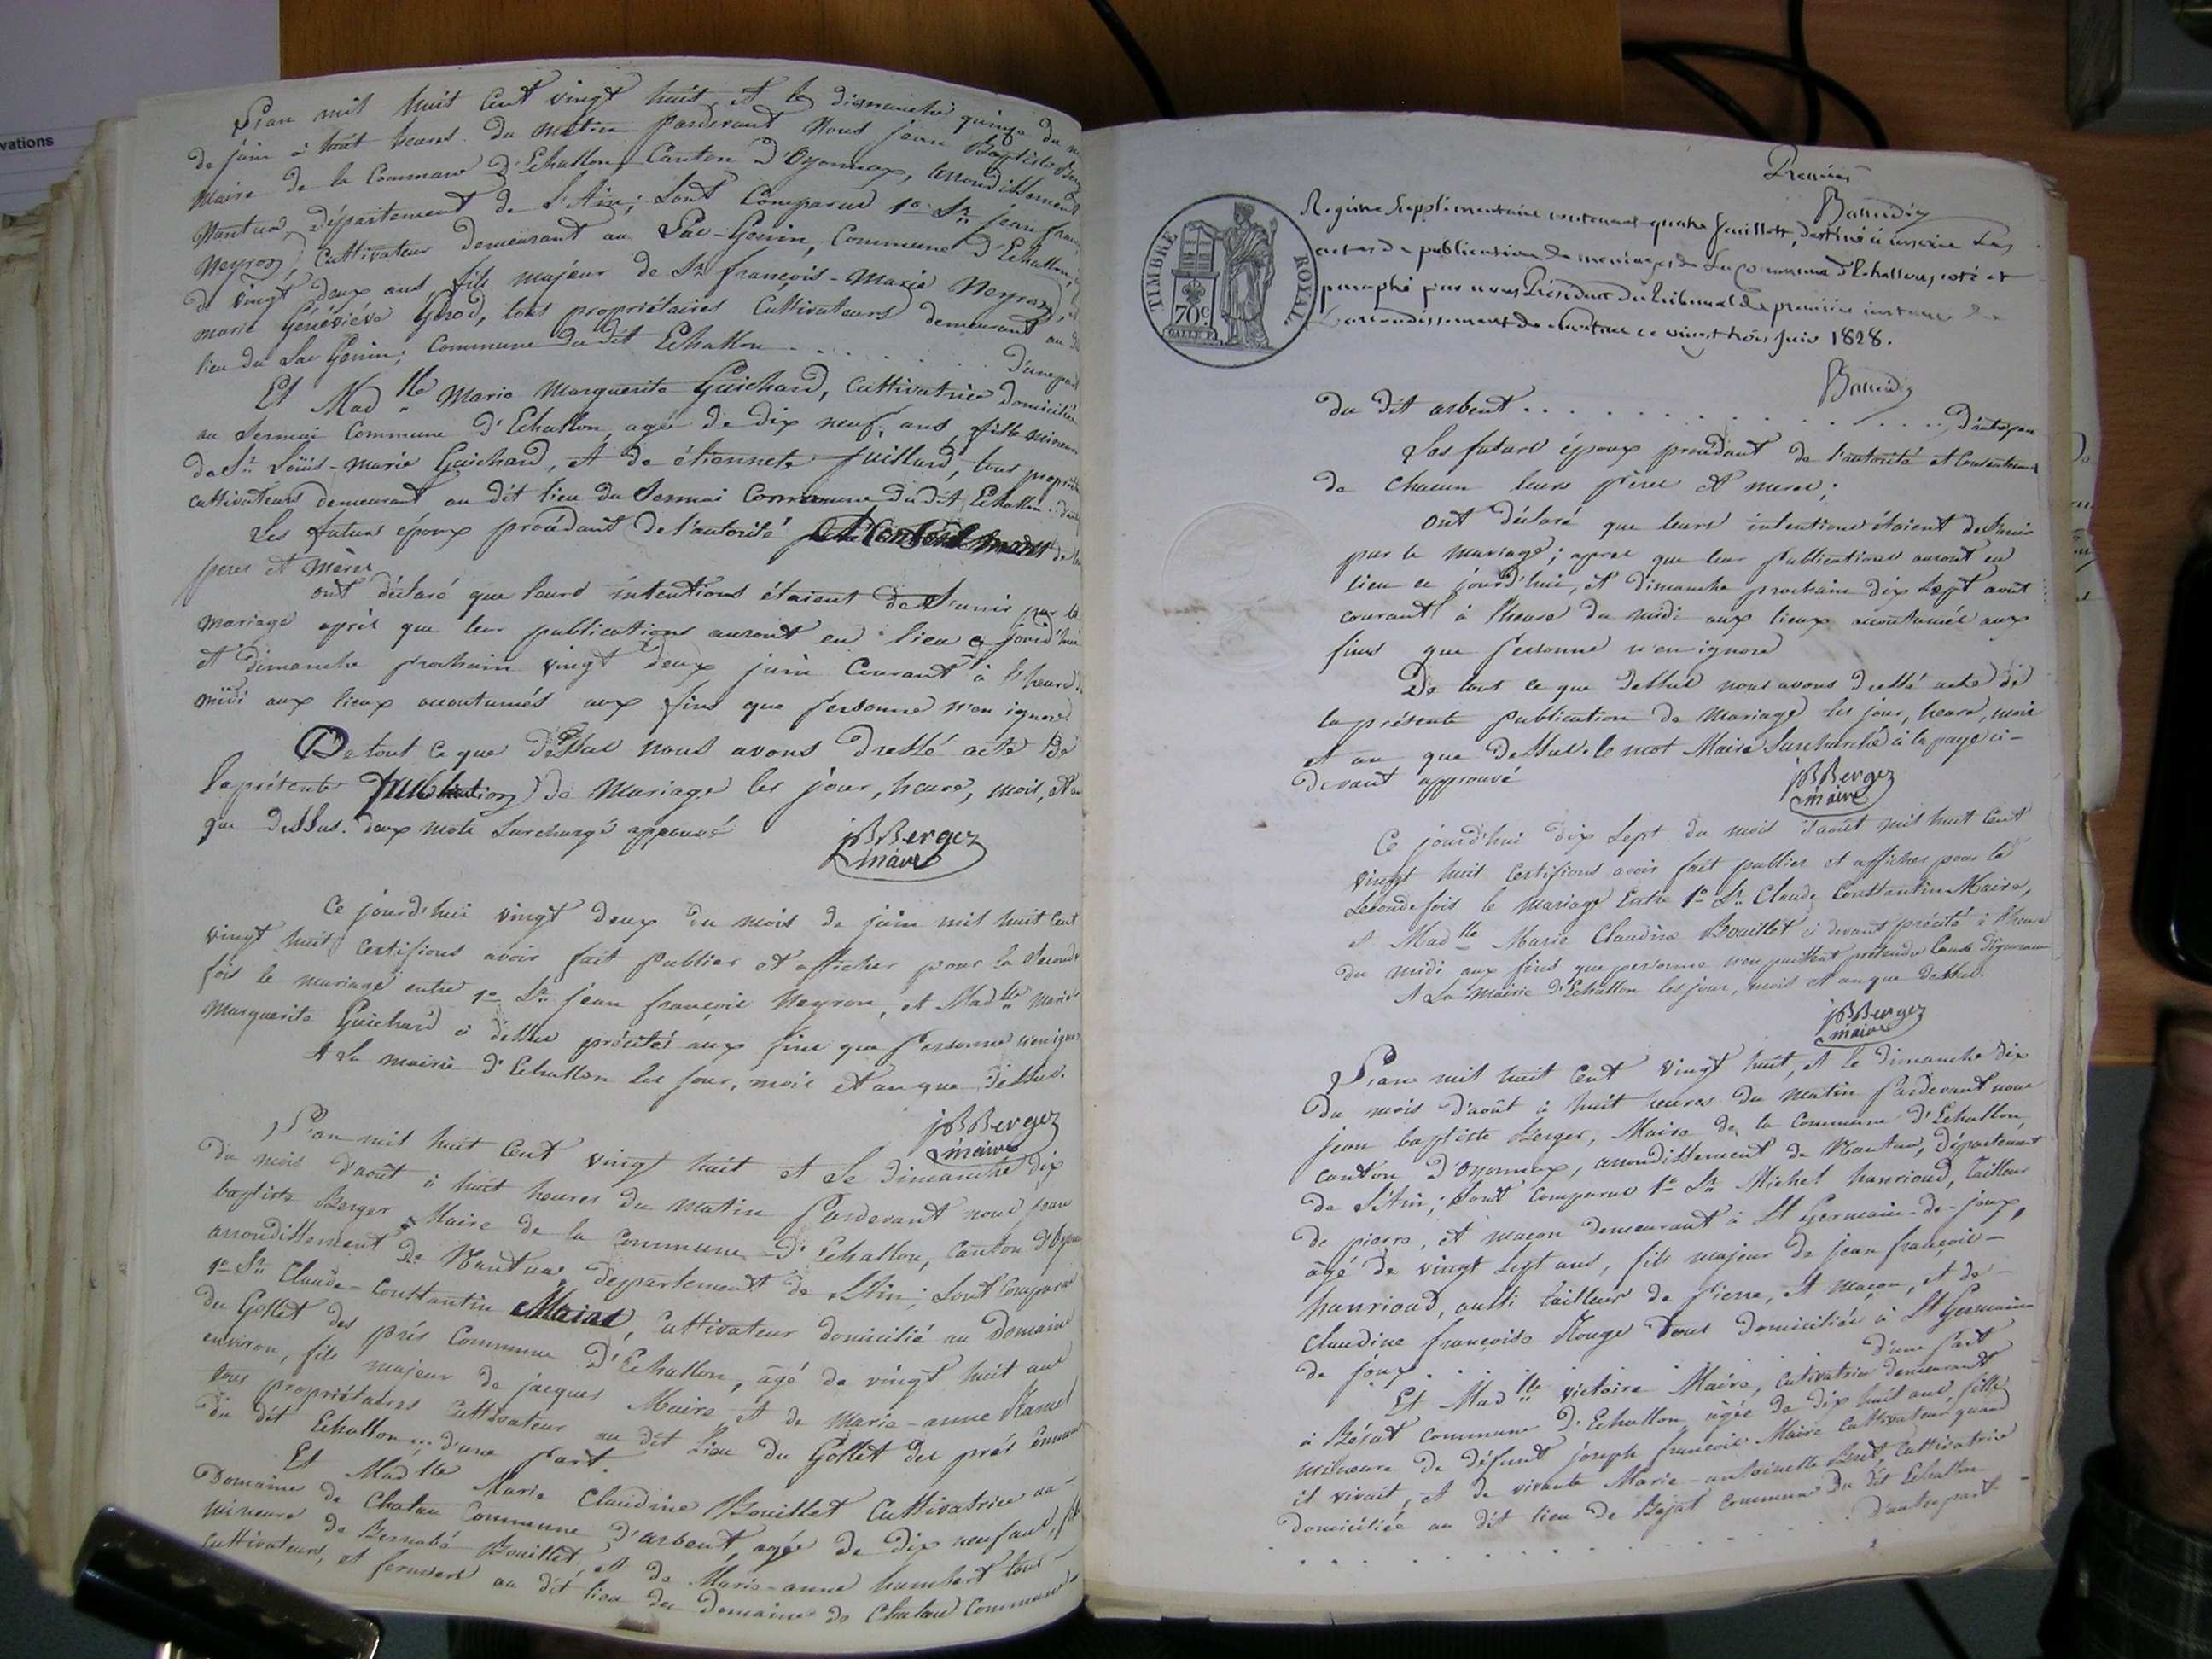 vations
L'an mil huit Cent vingt huit et le dimanche quinze du
de juin à huit heures du matin pardevant Nous jean Baptiste
Maire de la Commune d'Echallon, Canton d'Oyonnax, arrondissement
Nantua, département de l'Ain; sont Comparus 1º Sr. jean
Neyron, Cultivateur demeurant au Lac-Genin, Commune d'Echallon,
de vingt deux ans fils majeur de Sr. françois-Marie Neyron,
marie Géneviéve Girod, tous propriétaires Cultivateurs demeurant au
lieu du Lac Genin; Commune du dit Echallon . . . . . . . . d'une
Et Mad.lle Marie Marguerite Guichard, Cultivatrice domiciliée
au Sermai Commune d'Echallon, agée de dix neuf ans, fille
de Sr. Loüis-marie Guichard, et de étiennete juillard, tous
cultivateurs demeurant au dit lieu du Sermai Commune du dit Echallon
Les futurs époux procédant de l'autorité et Consentement de
peres et Mères
ont déclaré que leurs intentions étaient de s'unir par le
mariage après que leur publications auront eu lieu ce jourd'hui
et dimanche prochain vingt deux juin Courant à l'heure
midi aux lieux accoutumés aux fins que personne n'en ignore.
De tout ce que dessus nous avons dressé acte de
la présente publication de Mariage les jour, heure, mois, et an
que dessus. deux mots surchargé approuvé
jBBergez
maire
Ce jourd'hui vingt deux du mois de juin mil huit Cent
vingt huit Certifions avoir fait publier et afficher pour la seconde
fois le mariage entre 1º Sr. jean françois Neyron, et Mad.lle Marie
Marguerite Guichard ci dessus précités aux fins que personne n'en ignore
A La mairie d'Echallon les jour, mois et an que dessus.
jBBergez
maire
L'an mil huit Cent vingt huit et le Dimanche dix
du mois d'août à huit heures du matin Pardevant nous jean
baptiste Berger Maire de la Commune d'Echallon, Canton
arrondissement de Nantua, département de l'Ain; sont Comparus
1º Sr. Claude-Constantin Maire, Cultivateur domicilié au Domaine
du Gollet des prés Commune d'Echallon, âgé de vingt huit ans
environ, fils majeur de jacques Maire, et de Marie-anne
tous propriétaires Cultivateur au dit Lieu du Gollet des prés
du dit Echallon . . . d'une part
Et Madlle Marie Claudine Bouillet Cultivatrice au
Domaine de Chatau Commune d'arbent, agée de dix neuf ans,
mineure de Bernabé Bouillet, et de Marie-anne humbert tous
Cultivateurs, et fermiers au dit lieu du Domaine de Chatau Commune
Premier
Baudin
TIMBRE ROYAL
70c.
Registre Supplémentaire contenant quatre feuillets, destiné à inscrire Les
actes de publication de mariages de La Commune d'Echallon, coté et
paraphé par nous Président du tribunal de première instance de
L'arrondissement de Nantua ce vingt trois Juin 1828.
Baudin
du dit arbent . . . . . . . . . . d'autre part
Les futurs époux procédant de l'autorité et Consentement
de chacun leurs pères et meres;
ont déclaré que leurs intentions étaient de s'unir
par le mariage; après que leur publications auront eu
lieu ce jourd'hui, et dimanche prochain dix sept août
courant à l'heure du midi aux lieux accoutumés aux
fins que personne n'en ignore
De tout ce que dessus nous avons dressé acte de
la présente publication de Mariage les jour, heure, mois
et an que dessus. le mot Maire Surchargé à la page ci-
devant approuvé
jBBergez
maire
Ce jourd'hui dix sept du mois d'août mil huit Cent
vingt huit Certifions avoir fait publier et afficher pour la
seconde fois le mariage Entre 1º Sr. Claude Constantin Maire,
et Madlle Marie Claudine Bouillet ci devant précité à l'heure
du midi aux fins que personne n'en puissent prétendre Cause d'ignorance
A La Mairie d'Echallon les jour, mois et an que dessus.
jBBergez
maire
L'an mil huit Cent vingt huit, et le dimanche dix
du mois d'août à huit heures du matin Pardevant nous
jean baptiste Berger, Maire de la Commune d'Echallon,
canton d'Oyonnax, arrondissement de Nantua, département
de l'Ain; sont Comparus 1º Sr. Michel hanrioud, tailleur
de pierre, et maçon demeurant à St Germain-de-joux,
âgé de vingt sept ans, fils majeur de jean françois-
hanrioud, aussi tailleur de Pierre, et maçon, et de
Claudine françoise Rouge tous domiciliés à St Germain
de joux . . . . . . . d'une part
Et Madlle victoire Maire, Cultivatrice demeurant
à Béjat Commune d'Echallon, agée de dix huit ans, fille
mineure de défunt joseph françois Maire Cultivateur quand
il vivait, et de vivante Marie-antoinette Cultivatrice
domiciliée au dit lieu de Bejat Commune du dit Echallon
. . . . . . . . . . . . d'autre part.